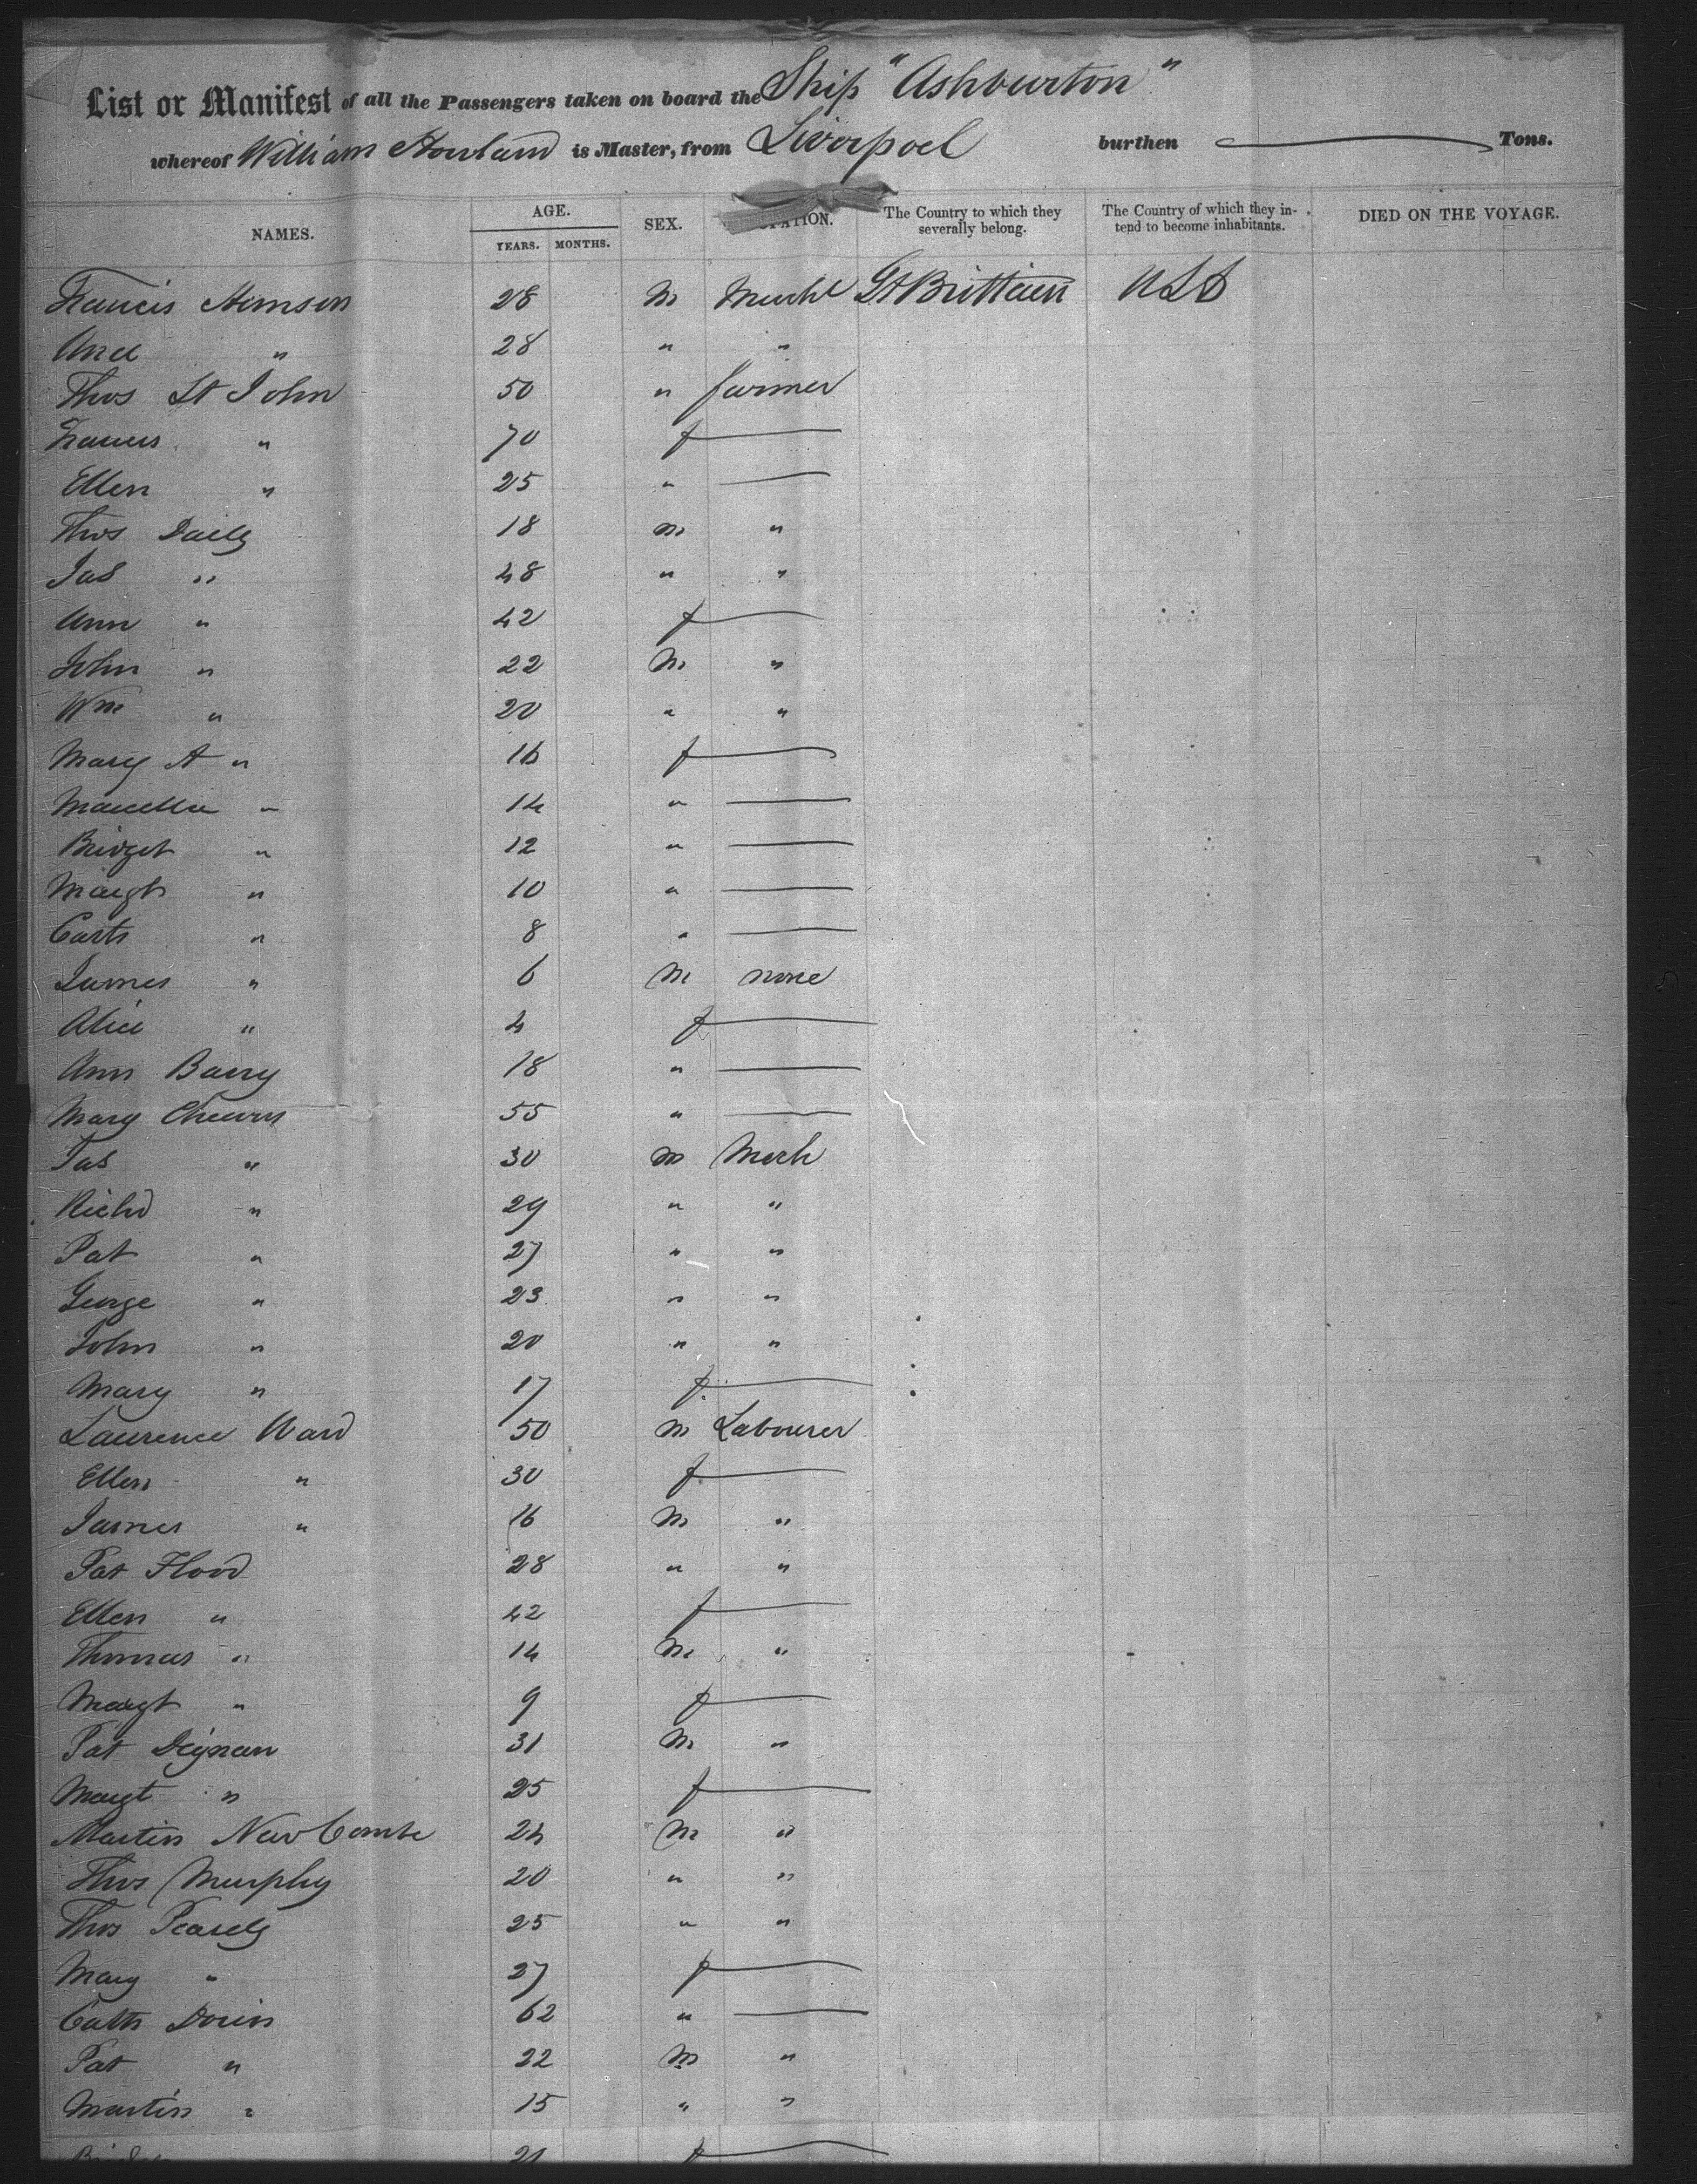 List or Manifest of all the Passengers taken on board the Ship "Ashburton"
whereof William Howland is Master, from Liverpool burthen Tons.
NAMES. AGE. YEARS. MONTHS. SEX. The Country to which they severally belong. The Country of which they intend to become inhabitants. DIED ON THE VOYAGE.
Francis 28 m Gt Brittain USA
28 " "
Thos St John 50 " farmer
Frances " 70 f
Ellen " 25 "
Thos Daily 18 m "
Jas " 48 " "
Ann " 42 f
John " 22 m "
Wm " 20 " "
Mary A " 16 f
Marcella " 14 "
Bridget " 12 "
Margt " 10 "
" 8 "
James " 6 m none
Alice " 4 f
Ann Barry 18 "
Mary 55 "
Jas " 30 m Mech
Richd " 29 " "
Pat " 27 " "
George " 23 " "
John " 20 " "
Mary " 17 f
Laurence Ward 50 m Labourer
Ellen " 30 f
James " 16 m "
Pat Flood 28 " "
Ellen " 42 f
Thomas " 14 m "
Margt " 9 f
Pat Dignan 31 m "
Margt " 25 f
Martin NewCombe 24 m "
Thos Murphy 20 " "
Thos 25 " "
Mary " 27 f
Cath 62 "
Pat " 22 m "
Martin " 15 " "
21 f